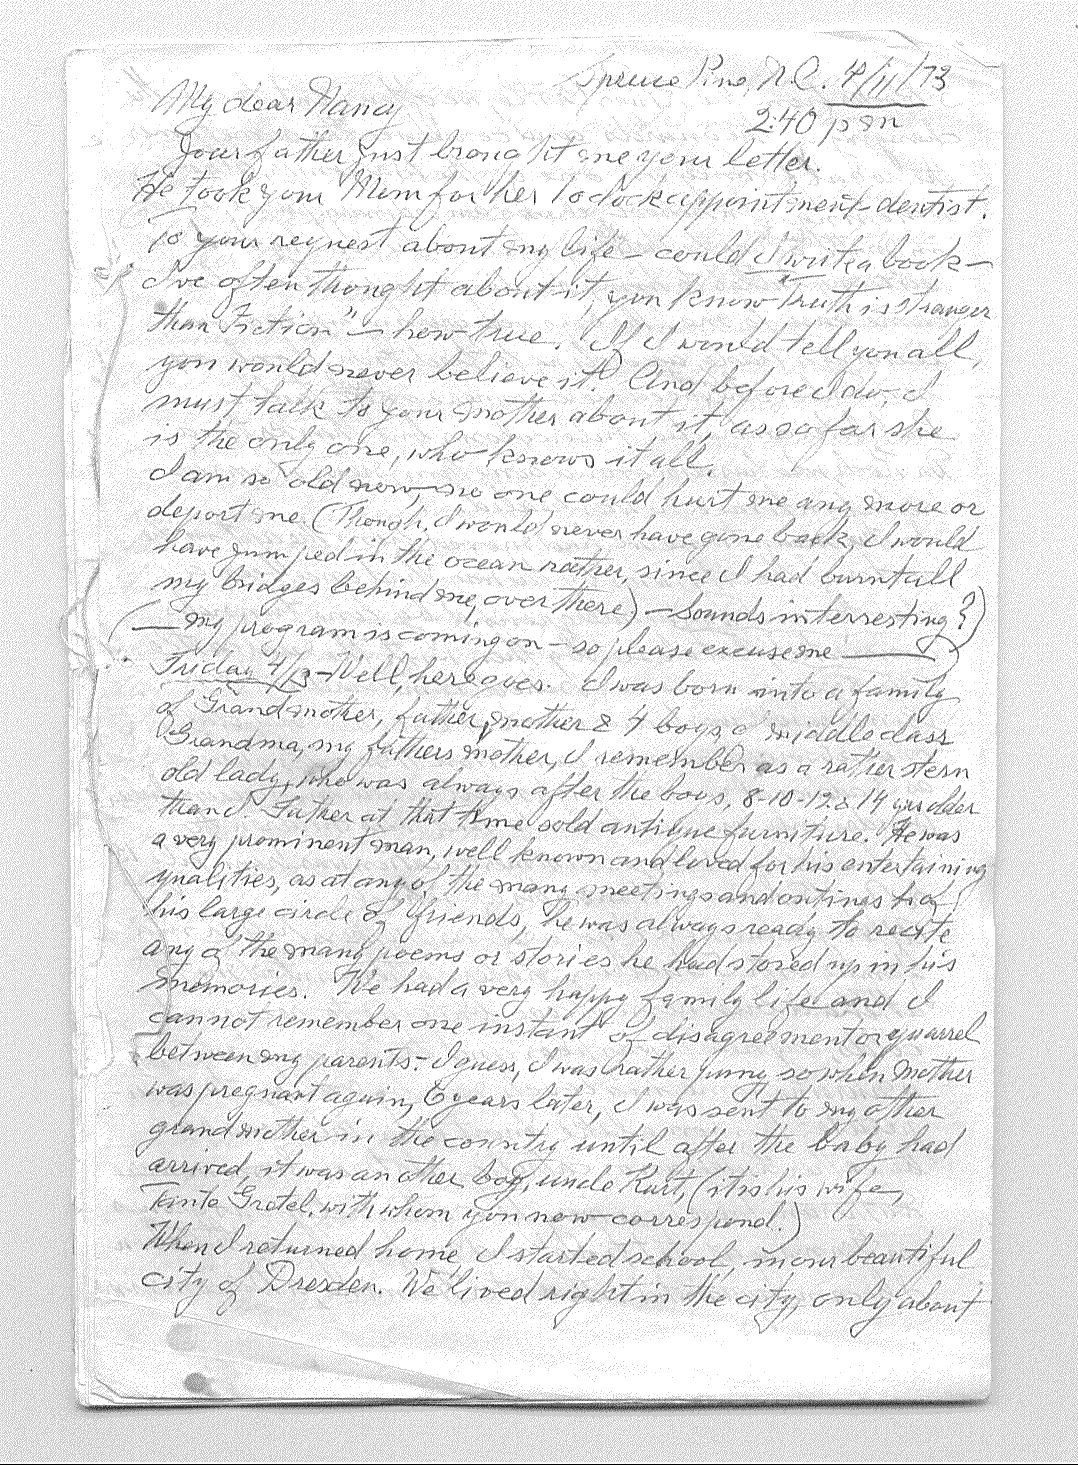 Spruce Pine, N.C. 4/11/73
My dear Nancy
2:40 pm
Your father just brought me your letter.
He took your Mom for her 1 o clock appointment - dentist.
To your request about my life - could I write a book -
I've often thought about it, you know "Truth is stranger
than Fiction" - how true. If I would tell you all,
you would never believe it. And before I do, I
must talk to your mother about it, as so far she
is the only one, who knows it all.
I am so old now, no one could hurt me any more or
deport me. (Though, I would never have gone back, I would
have jumped in the ocean rather, since I had burnt all
my bridges behind me, over there.) - Sounds interresting?)
(— my program is coming on - so please excuse me —
Friday 4/13 - Well, here goes. I was born into a family
of Grandmother, father, mother & 4 boys, middle class
Grandma, my fathers mother, I remember as a rather stern
old lady, who was always after the boys, 8-10-12 & 14 yrs older
than I. Father at that time sold antique furniture. He was
a very prominent man, well known and loved for his entertaining
qualities, as at any of the many meetings and outings
his large circle of friends, he was always ready to recite
any of the many poems or stories he had stored up in his
memories. We had a very happy family life and I
cannot remember one instant of disagreement or quarrel
between my parents. - I guess, I was rather puny so when Mother
was pregnant again, 6 years later, I was sent to my other
grandmother in the country until after the baby had
arrived, it was an other boy, uncle Kurt, (it is his wife,
Tante Gretel, with whom you now correspond.)
When I returned home I started school, in our beautiful
city of Dresden. We lived right in the city, only about